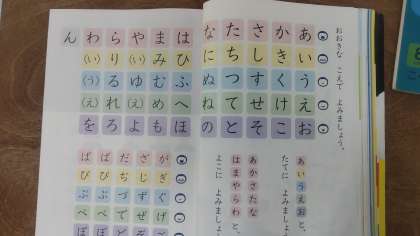 おおきな こえで よみましょう。
あいうえお
かきくけこ
さしすせそ
たちつてと
なにぬねの
はひふへほ
まみむめも
や(い)ゆ(え)よ
らりるれろ
わ(い)(う)(え)を
ん
あいうえお と、
たてに よみましょう
あかさたな
はまやらわ と、
よこに よみましょう
がぎぐげご
ざじずぜ
だぢづで
ばびぶべぼ
ぱぴぷぺぽ